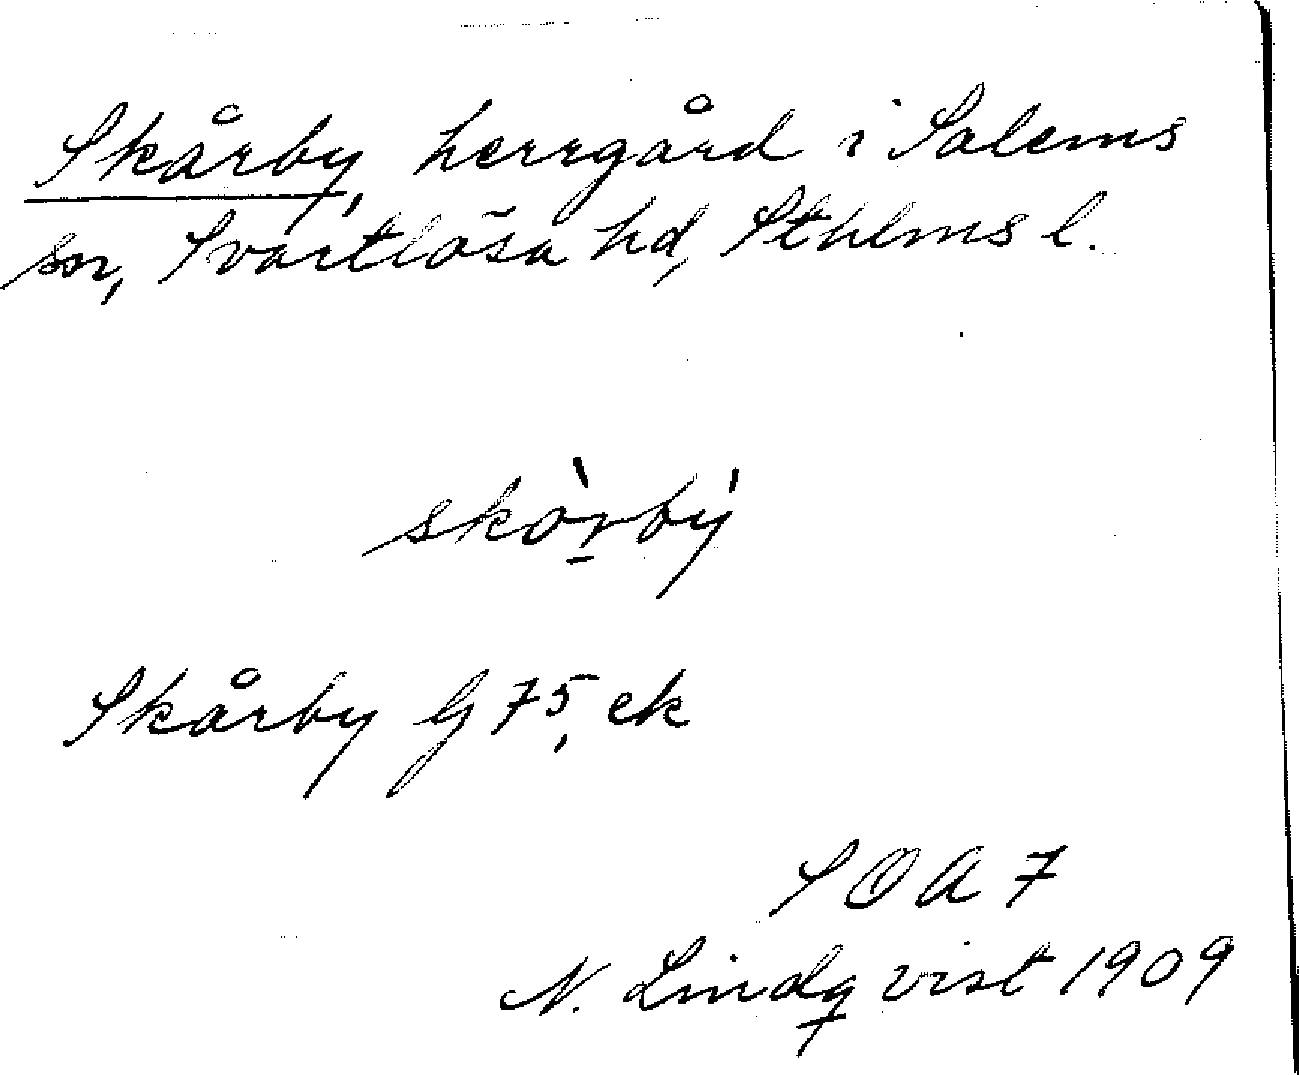 Skårby, herrgård i Salems
sn, Svartlösa hd, Sthlms l.
skòrbý
Skårby G 75, ek
SOA 7
N. Lindqvist 1909